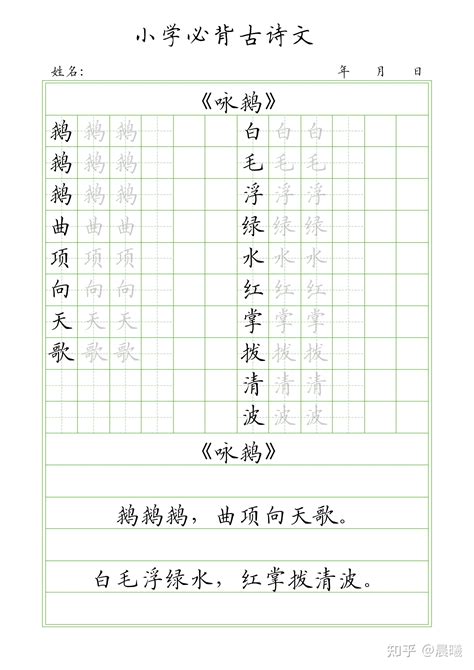 小学必背古诗文
姓名： 年 月 日
《咏鹅》
鹅 鹅 鹅 白 白 白
鹅 鹅 鹅 毛 毛 毛
鹅 鹅 鹅 浮 浮 浮
曲 曲 曲 绿 绿 绿
项 项 项 水 水 水
向 向 向 红 红 红
天 天 天 掌 掌 掌
歌 歌 歌 拨 拨 拨
清 清 清
波 波 波
《咏鹅》
鹅鹅鹅，曲项向天歌。
白毛浮绿水，红掌拨清波。
知乎 @晨曦